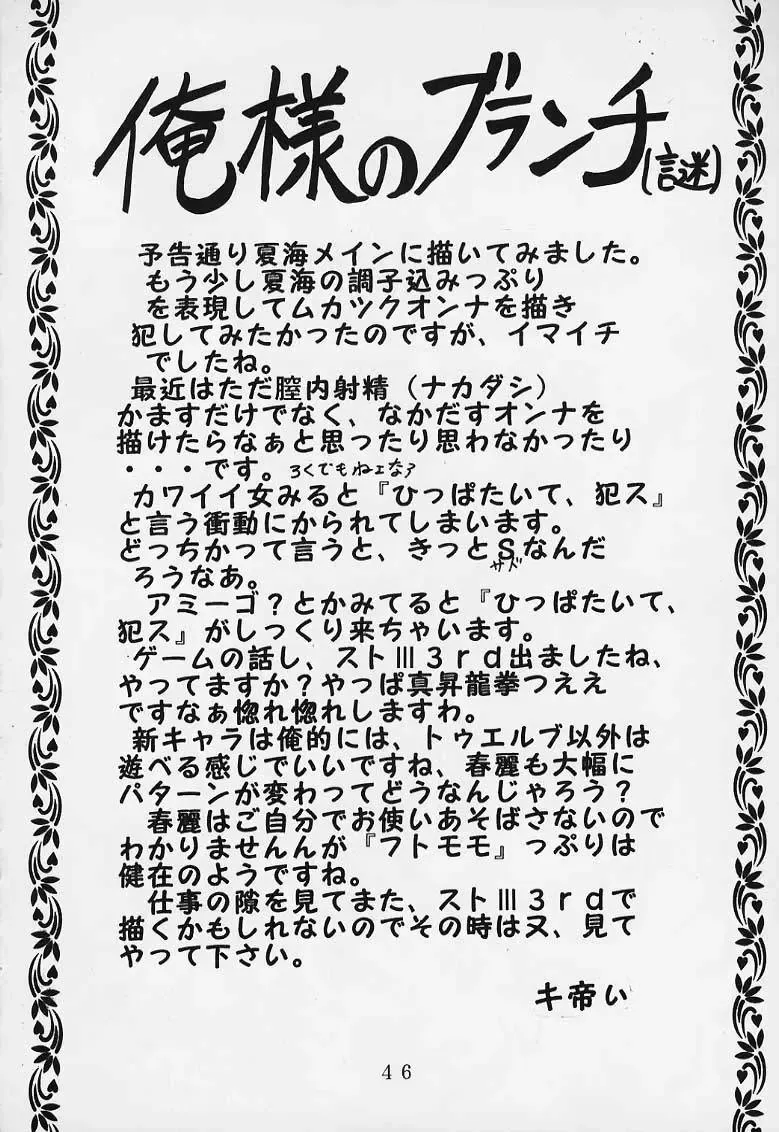 俺様のブランチ(謎)
予告通り夏海メインに描いてみました。
もう少し夏海の調子込みっぷり
を表現してムカツクオンナを描き
犯してみたかったのですが、イマイチ
でしたね。
最近はただ膣内射精（ナカダシ）
かますだけでなく、なかだすオンナを
描けたらなぁと思ったり思わなかったり
・・・です。ろくでもねェなァ
カワイイ女みると『ひっぱたいて、犯ス』
と言う衝動にかられてしまいます。
どっちかって言うと、きっとSなんだ
サド
ろうなあ。
アミーゴ？とかみてると『ひっぱたいて、
犯ス』がしっくり来ちゃいます。
ゲームの話し、ストⅢ３ｒｄ出ましたね、
やってますか？やっぱ真昇龍拳つええ
ですなぁ惚れ惚れしますわ。
新キャラは俺的には、トゥエルブ以外は
遊べる感じでいいですね、春麗も大幅に
パターンが変わってどうなんじゃろう？
春麗はご自分でお使いあそばさないので
わかりませんんが『フトモモ』っぷりは
健在のようですね。
仕事の隙を見てまた、ストⅢ３ｒｄで
描くかもしれないのでその時は又、見て
やって下さい。
キ帝ぃ
４６